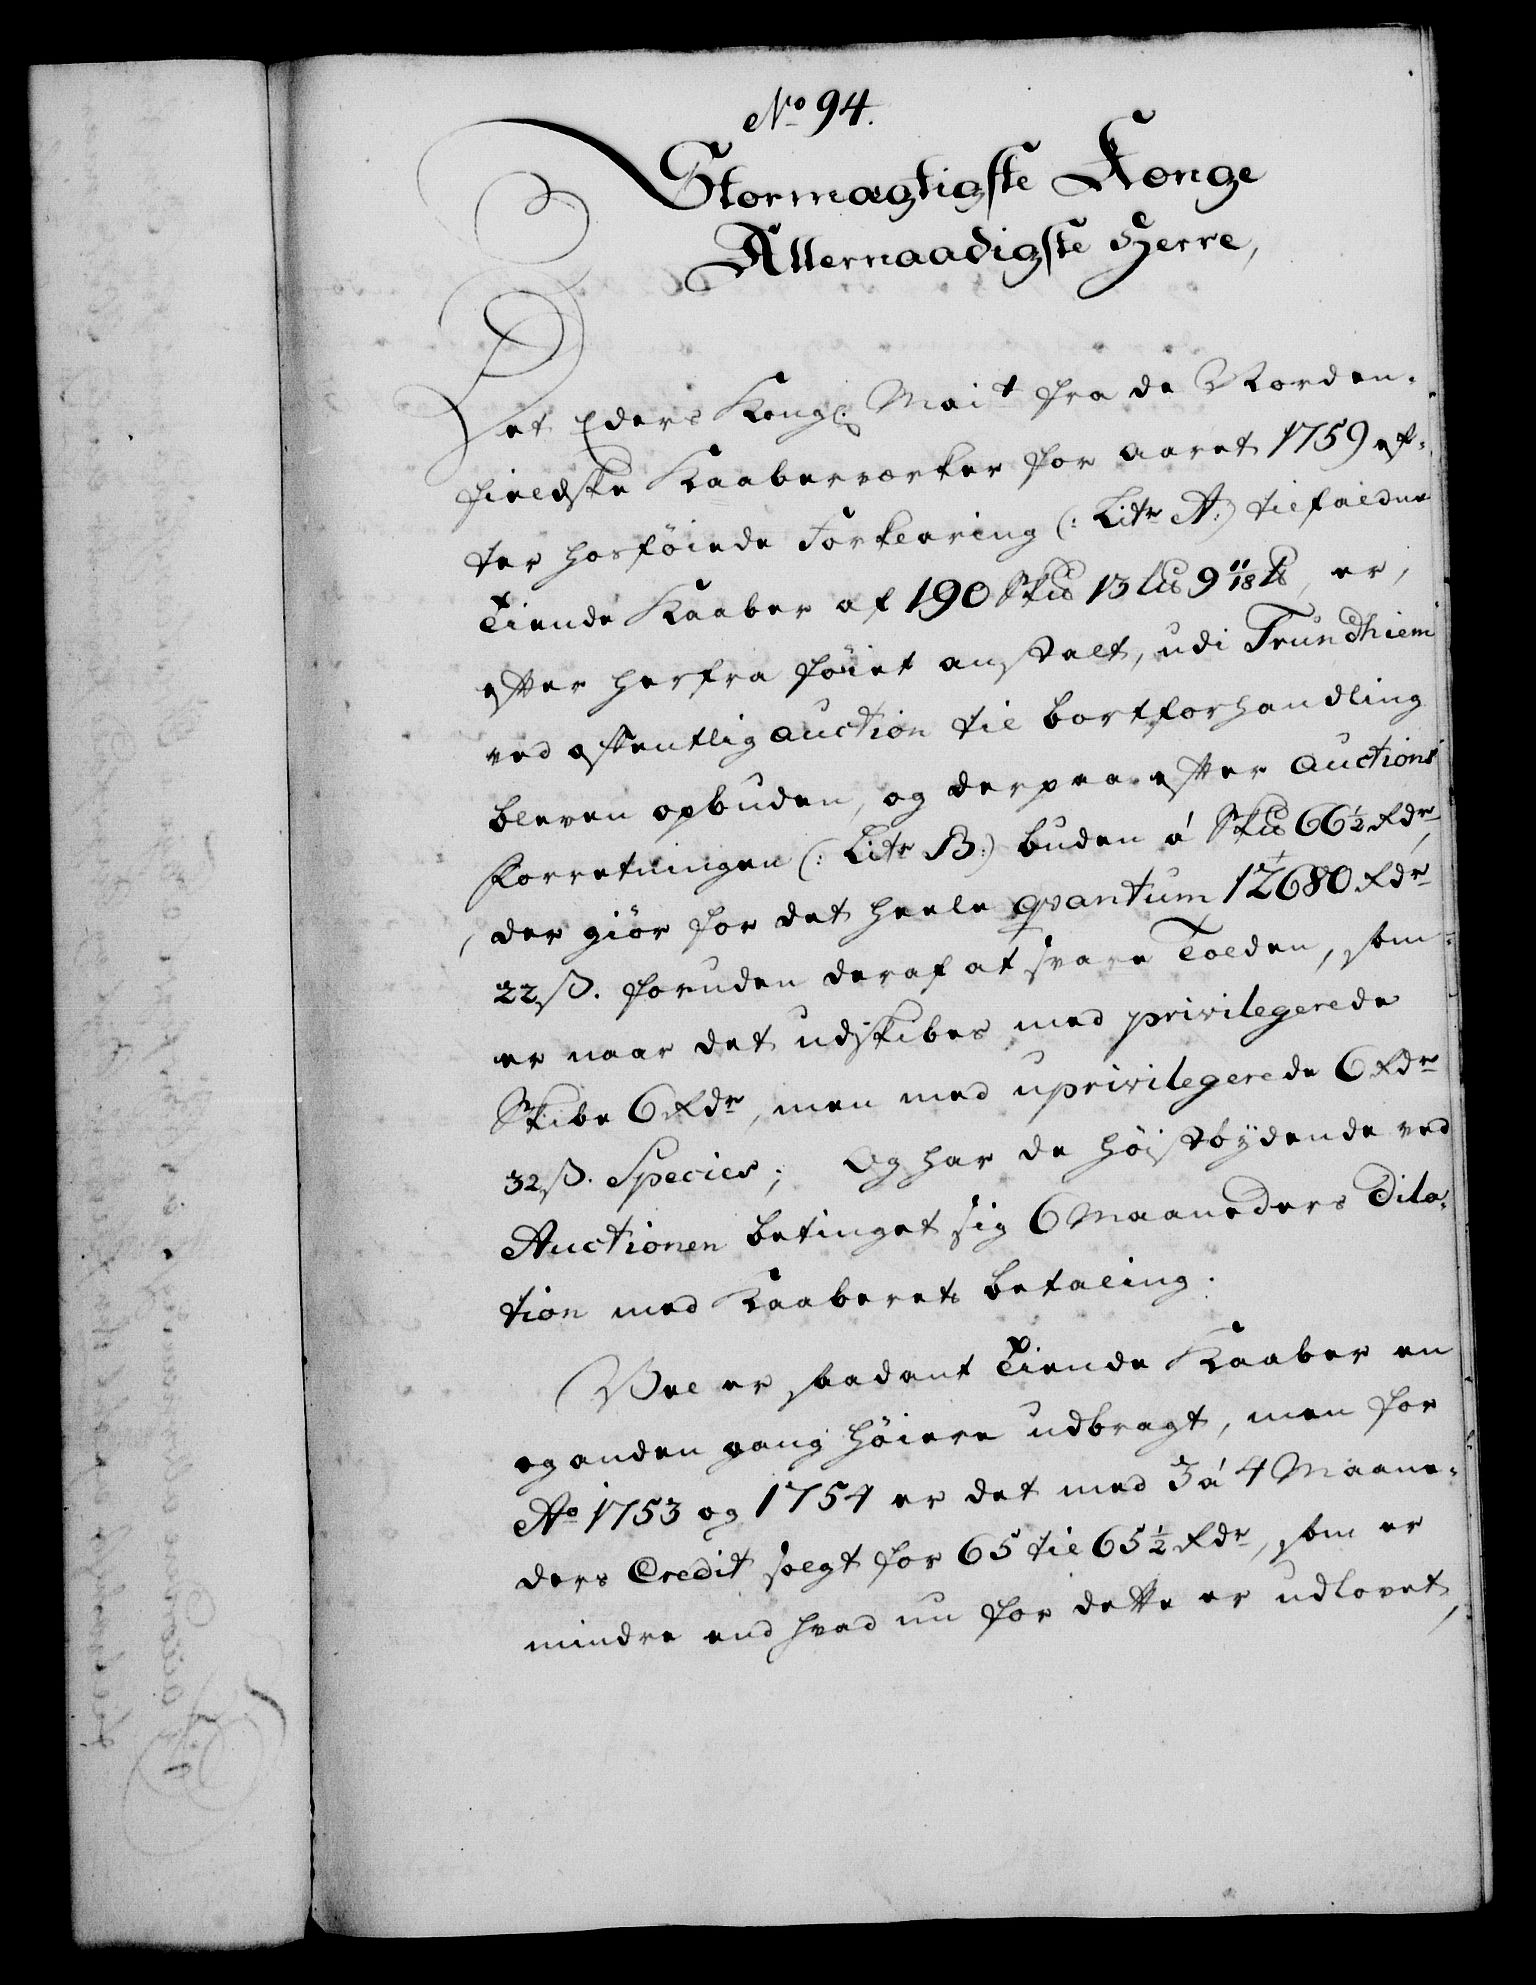 No 94.
Stormægtigste Konge
Allernaadigste Herre,
Det Eders Kongl: Mai:t fra de Norden-
fieldske Kaaberværker for Aaret 1759 ef-
ter hosföiede Forklaring (: Litr A:) tilfaldne
Tiende Kaaber af 190 Sk℔ 13 L℔ 9 11/18 ℔, er,
efter herfra föiet anstalt, udi Trundhiem
ved offentlig auction til bortforhandling
bleven opbuden, og derpaa efter Auctions
Forretningen (: Litr B:) buden á Sk℔ 66½ Rdr,
der giör for det heele qvantum 12680 Rdr
22 ß. foruden deraf at svare Tolden, som
er naar det udskibes med privilegerede
Skibe 6 Rdr, men med uprivilegerede 6 Rdr
32 ß. Species; Og har de höistbydende ved
Auctionen betinget sig 6 Maaneders Dila-
tion med Kaaberets betaling.
Vel er saadant Tiende Kaaber en
og anden gang höiere udbragt, men for
Ao 1753 og 1754 er det med 3 á 4 Maane-
ders Credit solgt for 65 til 65½ Rdr, som er
mindre end hvad nu for dette er udlovet,